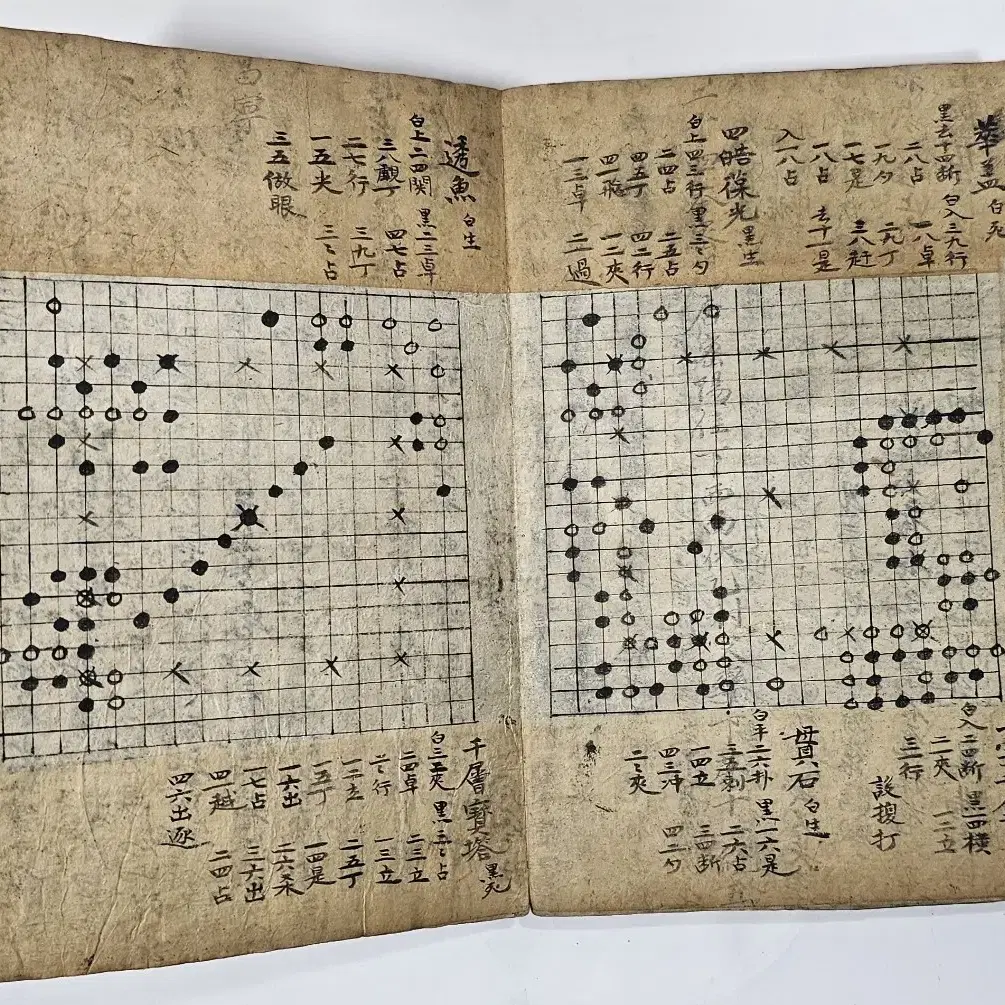 華盖 白死
黑去十四斫 白入三九行
二八占 一八卓
一九夕 二九丁
一七是 三八赶
一八占 去十一是
入一八占
四皓葆光 黑生
白上四三行 黑三三夕
二四占 二五占
四五丁 四二行
四一飛 一二夾
一三卓 二一過
白入二四斫 黑一四横
二二夾 一二立
三二行
設打
貫石 白生
白平二六扑 黑一六是
三五刺 二六占
一四立 三四斫
四三冲 四二夕
二夾
寧
透魚 白生
白上二四関 黑二三卓
三八觀丁 四七占
二七行 三九丁
一五夾 三三占
三五做眼
千層寶塔 黑死
白三五夾 黑三三占
二四卓 二三立
行 一三立
一二立 二五丁
一五丁 一四是
一六出 二六条
一七占 三六出
四一越 二四占
四六出逐